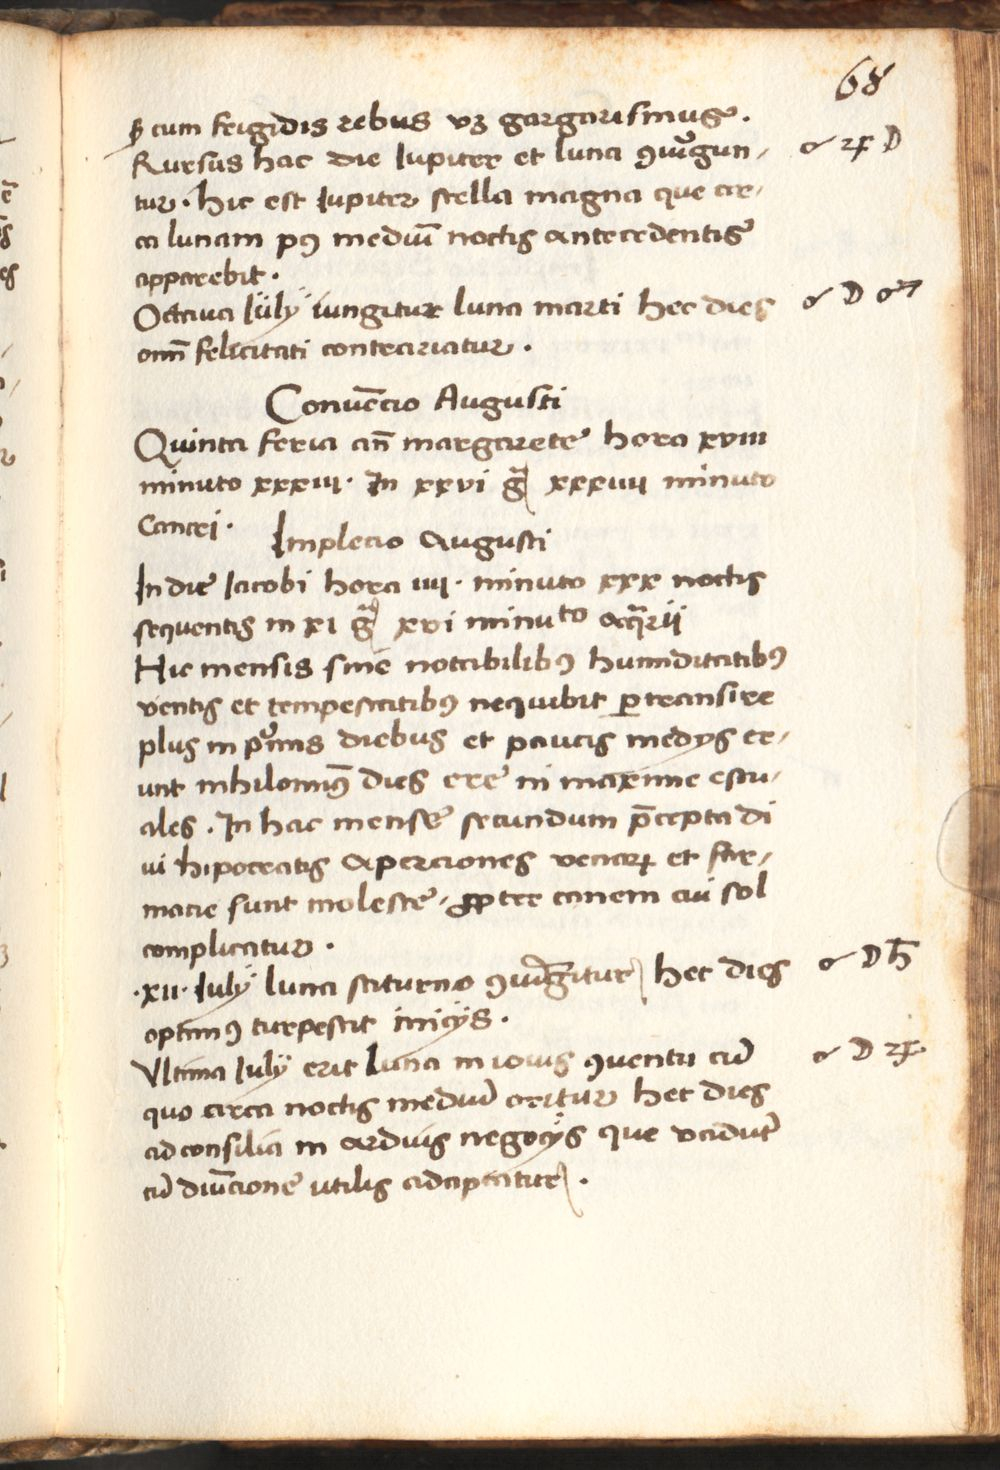 68
ꝑ cum frigidis rebus vꝫ gargarismus.
Rursus hac die Iupiter et luna ꝯiūgun- ☌ ♃ ☽
tur. hic est Iupiter stella magna que cir-
ca lunam pꝯ mediū noctis antecedentis
apparebit.
Octaua Iulÿ iungitur luna marti hec dies ☌ ☽ ♂
omī felicitati contrariatur.
Conuēcio Augusti
Quinta feria an̄ margarete hora xviii
minuto xxxiii. In xxvi gͣ xxxiiii minuto
Cancri.
Implecio Augusti
In die Iacobi hora iiii. minuto xxx noctis
sequentis in xi gͣ xvi minuto aqͣrii
Hic mensis sine notabilibꝯ humiditatibꝯ
ventis et tempestatibꝯ nequibit ꝑtransire
plus in pͥmis diebus et paucis medÿs er-
unt nihilominꝯ dies ere ni maxime estu-
ales. In hac mense secundum p̄cepta di
ui hipocratis aperciones venaꝝ et far-
macie sunt moleste. ꝓpter canem cui sol
complicatur.
.xii. Iulÿ luna saturno ꝯiūgitur hec dies ☌ ☽ ♄
optimꝯ turpescit inicÿs.
Vltima Iulÿ erit luna in iouis ꝯuentu cū ☌ ☽ ♃
quo circa noctis mediū oritur hec dies
ad consilia in arduis negocÿs que vadūt
cū diuīcione utilis adaptatur.